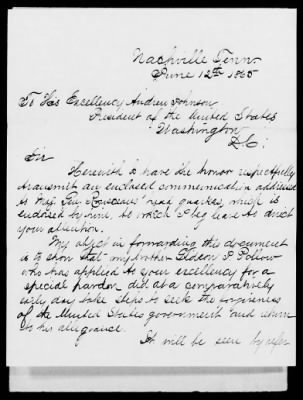 Nashville Tenn.
June 12th 1865
To His Excellency Andrew Johnson,
President of the United States
Washington
D.C.
Sir
Herewith I have the honor respectfully
to transmit an enclosed communication addressed
to Maj Gen Rousseau's head quarters, which is
endorsed by him, to which I beg leave to direct
your attention.
My object in forwarding this document
is to show that my brother Gideon J Pillow
who has applied to your excellency for a
special pardon did at a comparatively
early day take steps to seek the forgiveness
of the United States government and return
to his allegiance.
It will be seen by